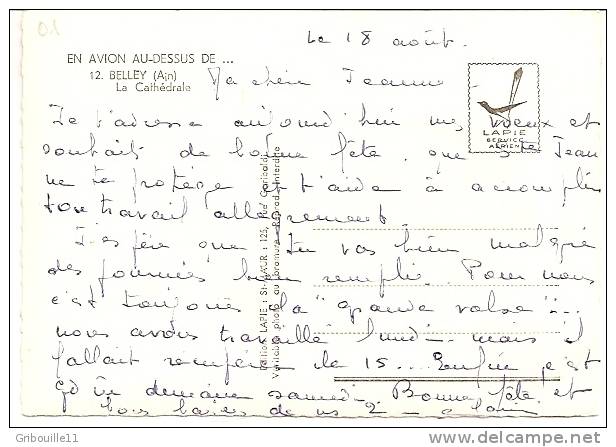 01
Le 18 août.
EN AVION AU-DESSUS DE ...
12. BELLEY (Ain)
La Cathédrale
Ma chère Jeanne
LAPIE
SERVICE
AÉRIEN
Je t'adresse aujourd'hui mes voeux et
souhaits de bonne fête. que Ste Jean
ne te protège et t'aide à accomplir
ton travail allègrement
J'espère que tu vas bien malgré
des journées bien remplies. Pour nous
c'est toujours la "grande valse"...
nous avons travaillé lundi mais il
fallait récupérer le 15... Enfin c'est
demain samedi. Bonne fête et
bons baisers de ns 2 -
Editions LAPIE : St-MAUR : 125, Rue Garibaldi
Véritable photo au bromure - Reprod. Interdite
Gribouille11
delcampe.net